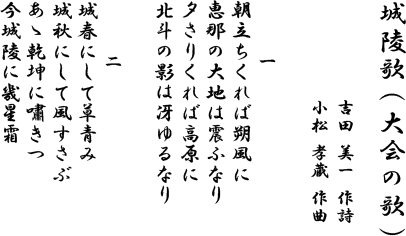 城陵歌(大会の歌)
吉田 美一 作詩
小松 孝蔵 作曲
一
朝立ちくれば朔風に
恵那の大地は震ふなり
夕さりくれば高原に
北斗の影は冴ゆるなり
二
城春にして草青み
城秋にして風すさぶ
あゝ乾坤に嘯きつ
今城陵に幾星霜